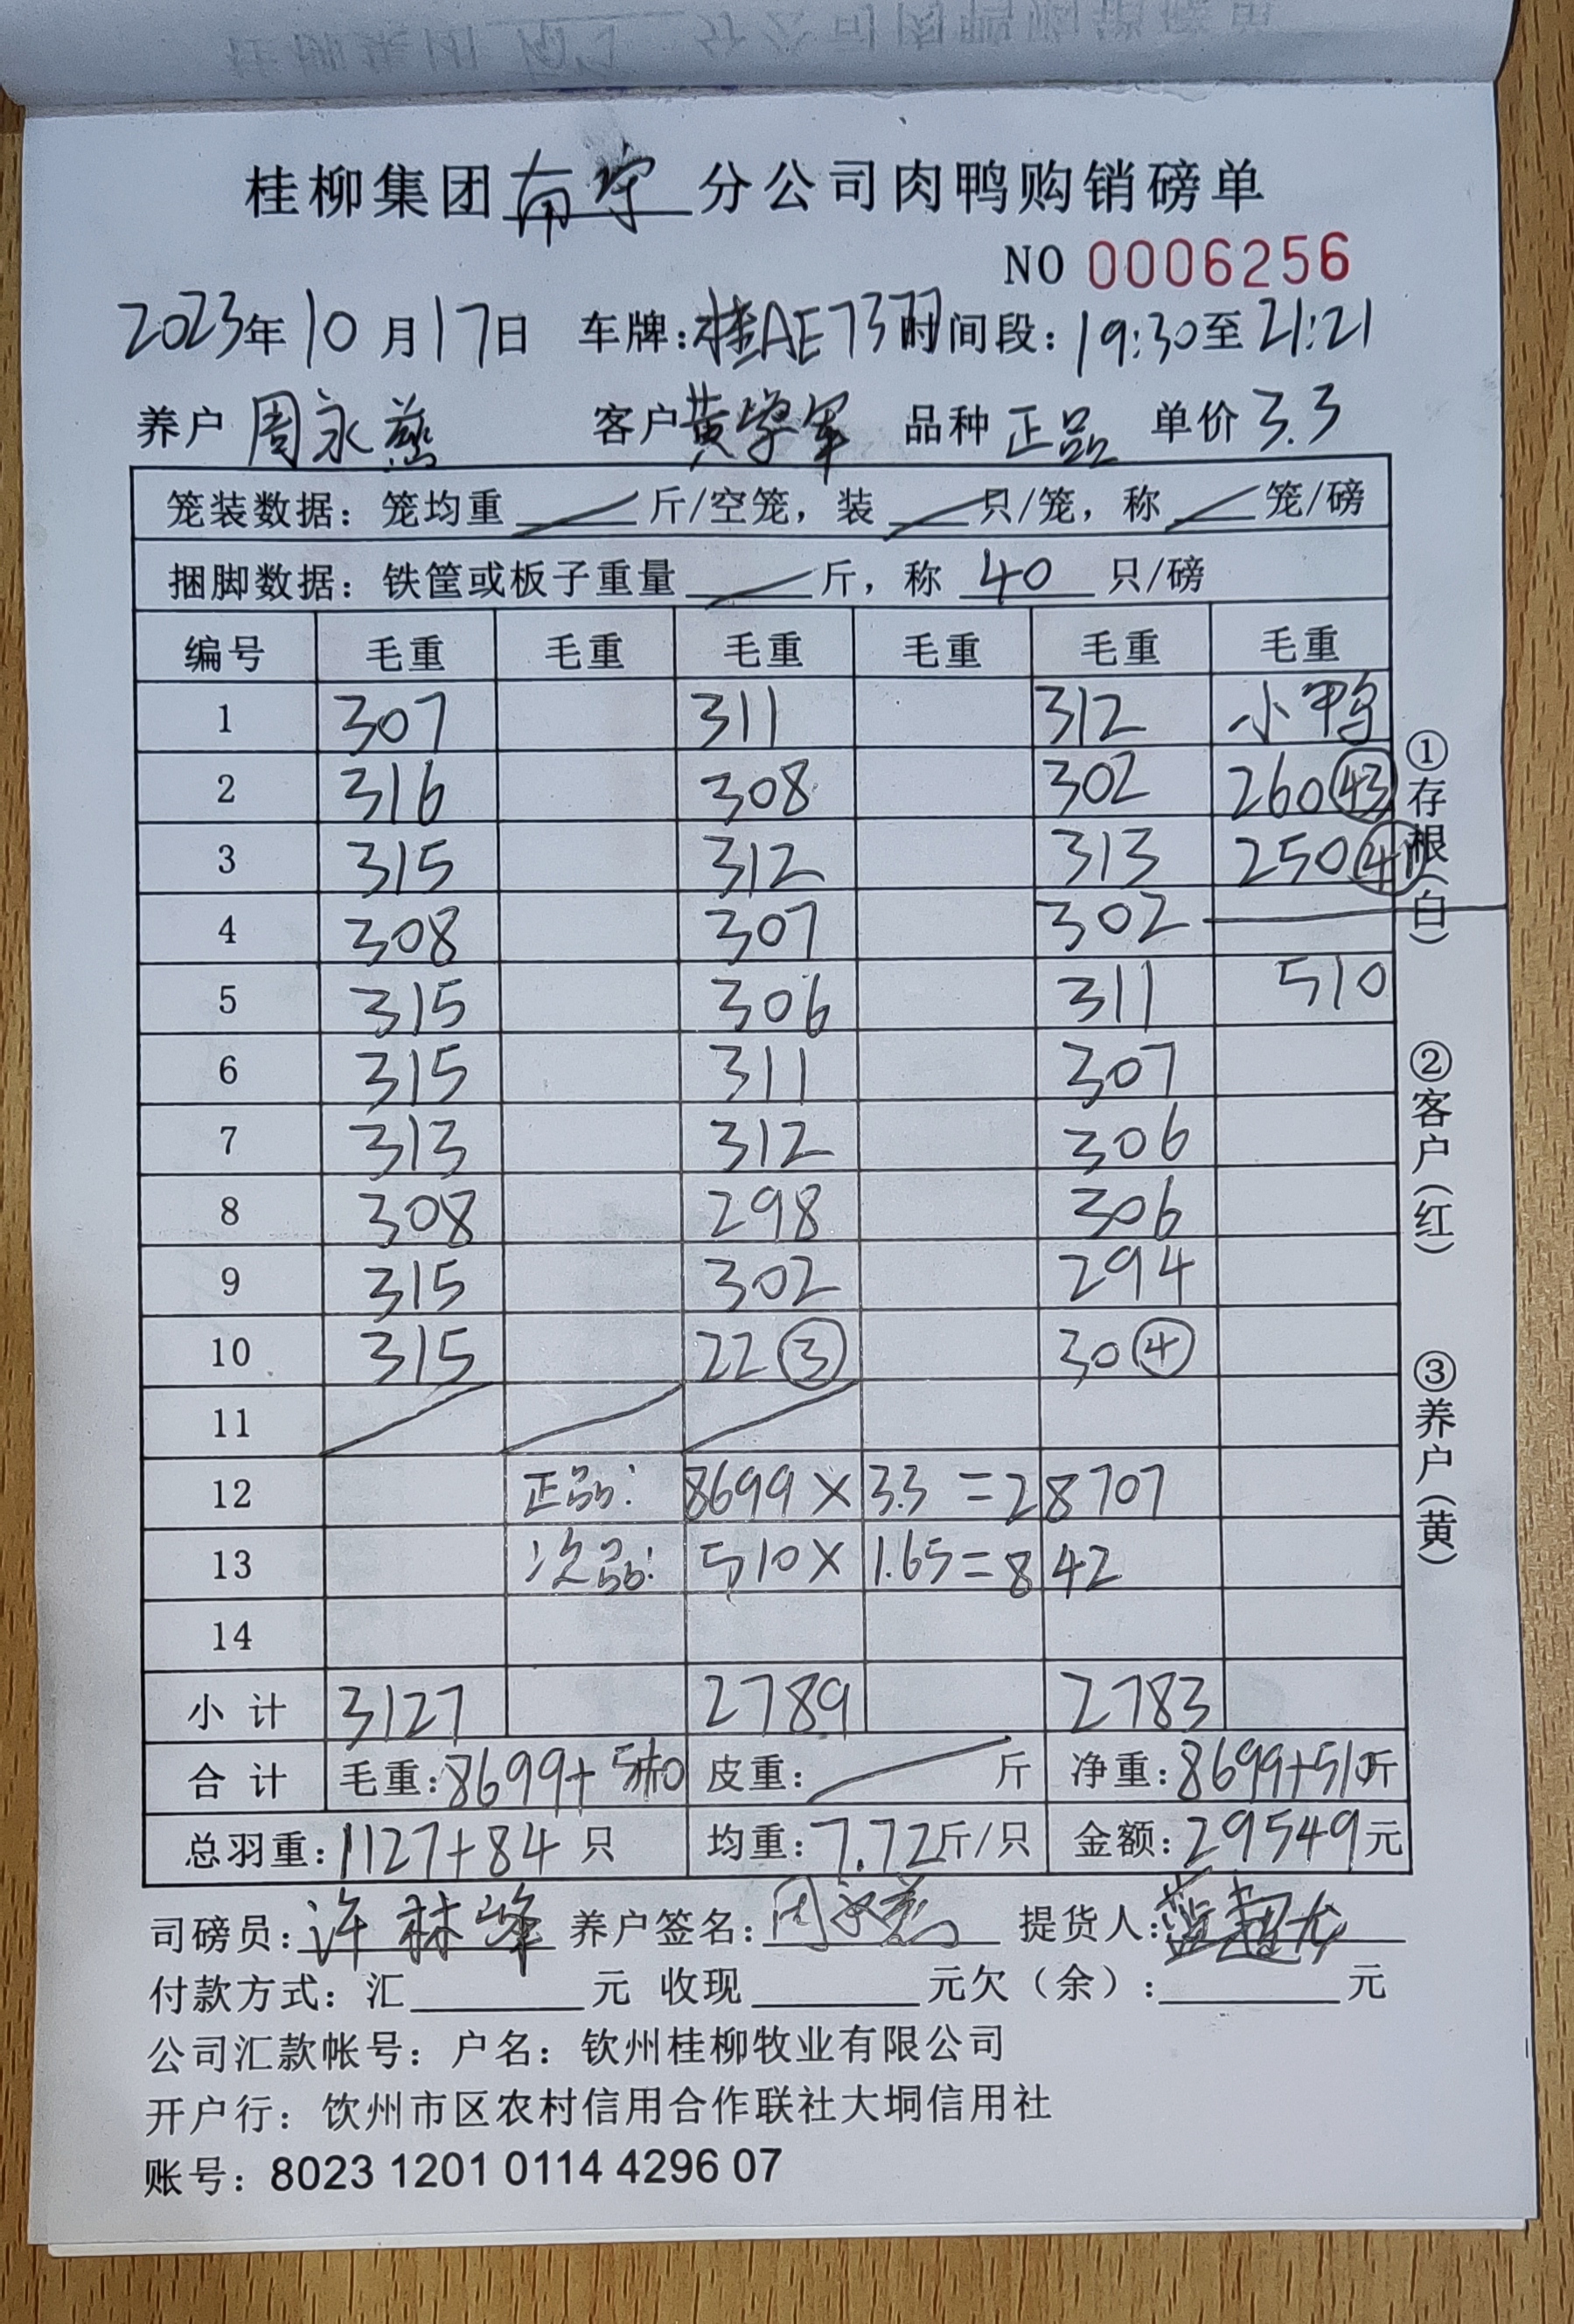 桂柳集团南宁分公司肉鸭购销磅单
NO 0006256
2023年10月17日 车牌:桂AE7377 时间段:19:30至21:21
养户 周永燕 客户 黄学军 品种 正品 单价 3.3
笼装数据:笼均重 / 斤/空笼,装 / 只/笼,称 / 笼/磅
捆脚数据:铁筐或板子重量 / 斤,称 40 只/磅
编号 毛重 毛重 毛重 毛重 毛重 毛重
1 307 311 312 小鸭
2 316 308 302 260 43
3 315 312 313 250 41
4 308 307 302
5 315 306 311 510
6 315 311 307
7 313 312 306
8 308 298 306
9 315 302 294
10 315 22 ③ 30 ④
11 / / /
12 正品: 8699 × 3.3 = 28707
13 次品: 510 × 1.65 = 842
14
小计 3127 2789 2783
合计 毛重:8699+510斤 皮重: / 斤 净重:8699+510斤
总羽重:1127+84 只 均重:7.72斤/只 金额:29549元
司磅员:许林峰 养户签名:周永燕 提货人:蓝超龙
付款方式:汇 元 收现 元欠(余): 元
公司汇款帐号:户名:钦州桂柳牧业有限公司
开户行:饮州市区农村信用合作联社大垌信用社
账号:8023 1201 0114 4296 07
①存根(白)
②客户(红)
③养户(黄)